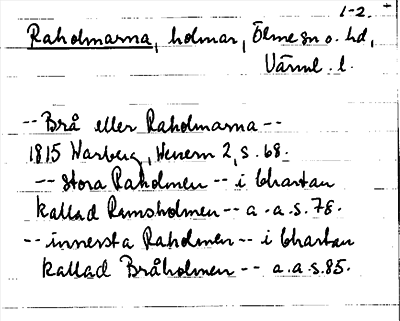 1-2.
Raholmarna, holmar, Ölme sn o. hd,
Värml. l.
-- Brå eller Raholmarna --
1815 Warberg, Wenern 2, s. 68.
-- Stora Raholmen -- i Chartan
kallad Ramsholmen -- a.a.s. 78.
-- innersta Raholmen -- i Chartan
kallad Bråholmen -- a.a.s. 85.